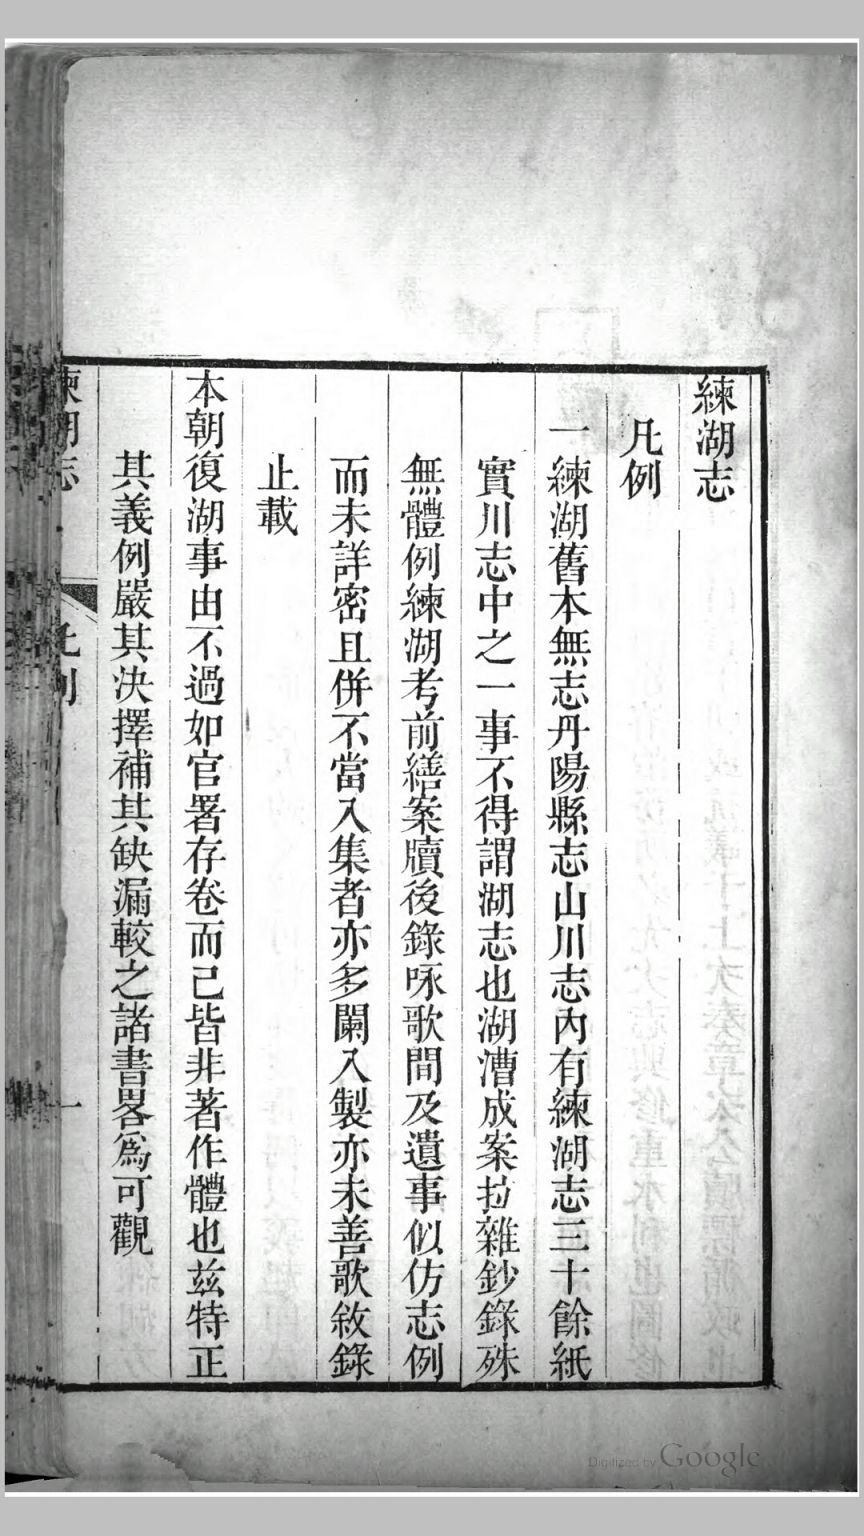 練湖志
凡例
一練湖舊本無志丹陽縣志山川志內有練湖志三十餘紙
實川志中之一事不得謂湖志也湖漕成案拉雜鈔錄殊
無體例練湖考前繕案牘後錄咏歌間及遺事似仿志例
而未詳密且併不當入集者亦多闌入製亦未善歌敘錄
止載
本朝復湖事由不過如官署存卷而已皆非著作體也茲特正
其義例嚴其決擇補其缺漏較之諸書畧爲可觀
練湖志
凡例
一
Digitized by Google